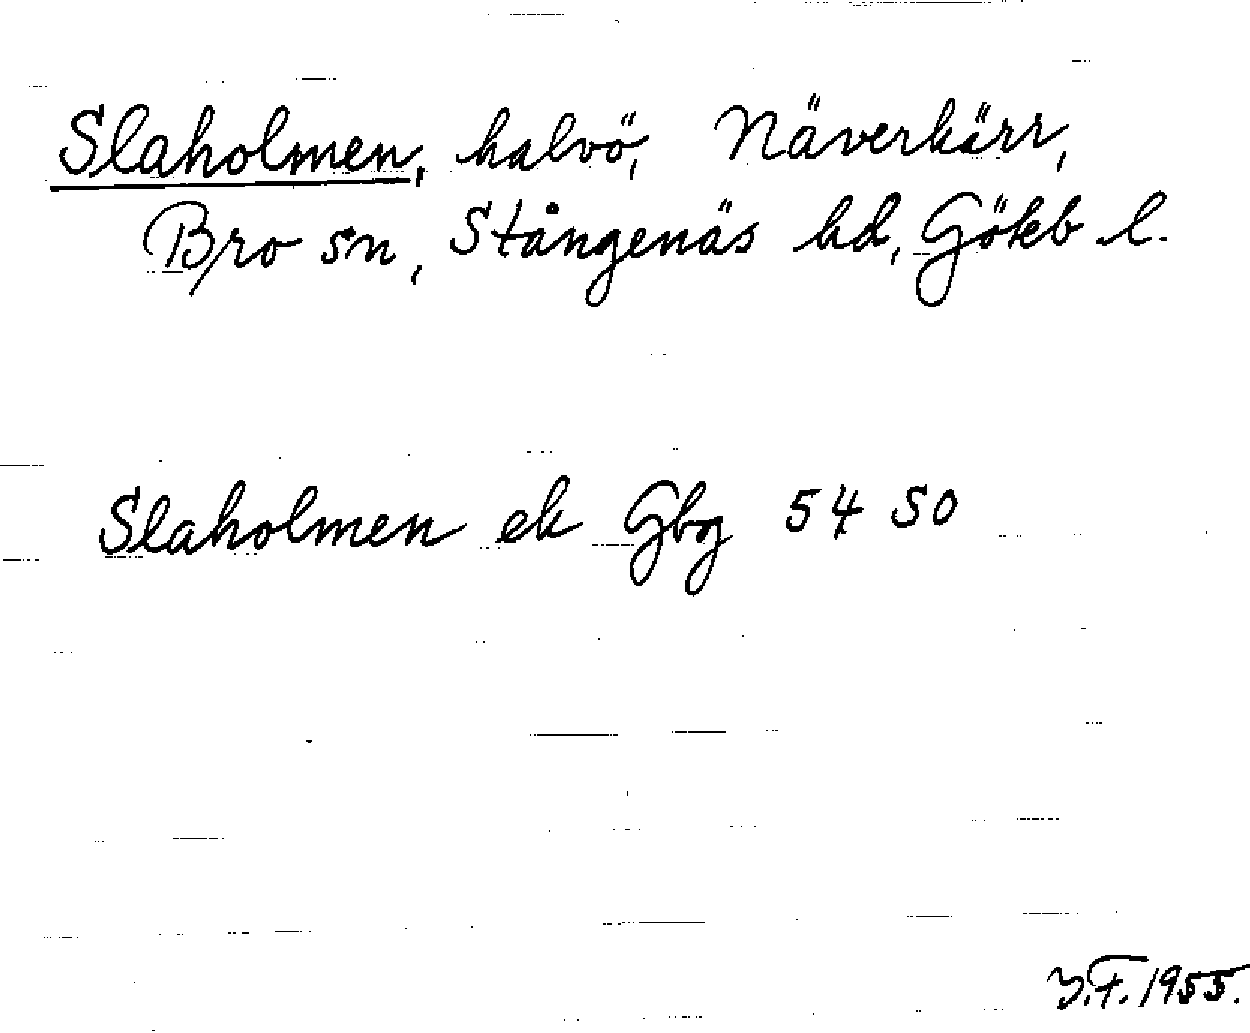 Slaholmen, halvö, Näverkärr,
Bro sn, Stångenäs hd, Gökb l.
Slaholmen ek Gbg 54 SO
J.F. 1955.